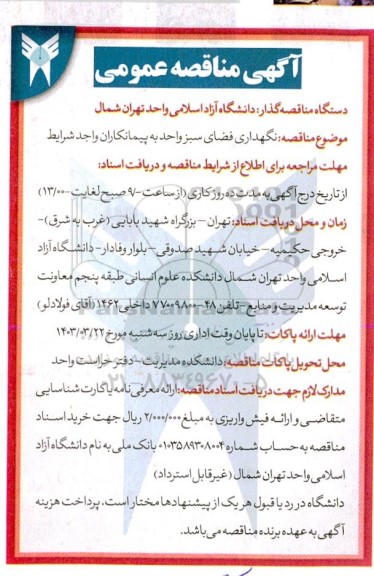 آگهی مناقصه عمومی
دستگاه مناقصه‌گذار: دانشگاه آزاد اسلامی واحد تهران شمال
موضوع مناقصه: نگهداری فضای سبز واحد به پیمانکاران واجد شرایط
مهلت مراجعه برای اطلاع از شرایط مناقصه و دریافت اسناد:
از تاریخ درج آگهی به مدت ده روز کاری (از ساعت ۹۰۰ صبح لغایت ۱۳/۰۰)
زمان و محل دریافت اسناد: تهران – بزرگراه شهید بابایی (غرب به شرق) –
خروجی حکیمیه – خیابان شهید صدوقی – بلوار وفادار – دانشگاه آزاد
اسلامی واحد تهران شمال دانشکده علوم انسانی طبقه پنجم معاونت
توسعه مدیریت و منابع – تلفن ۴۸–۷۷۰۰۹۸۰۰ داخلی ۱۴۶۲ (آقای فولادلو)
مهلت ارائه پاکات: تا پایان وقت اداری روز سه شنبه مورخ ۱۴۰۳/۰۳/۲۲
محل تحویل پاکات مناقصه: دانشکده مدیریت – دفتر حراست واحد
مدارک لازم جهت دریافت اسناد مناقصه: ارائه معرفی نامه یا کارت شناسایی
متقاضی و ارائه فیش واریزی به مبلغ ۲/۰۰۰/۰۰۰ ریال جهت خرید اسناد
مناقصه به حساب شماره ۰۱۰۳۵۸۹۳۰۸۰۰۴ بانک ملی به نام دانشگاه آزاد
اسلامی واحد تهران شمال (غیرقابل استرداد)
دانشگاه در رد یا قبول هر یک از پیشنهادها مختار است، پرداخت هزینه
آگهی به عهده برنده مناقصه می‌باشد.